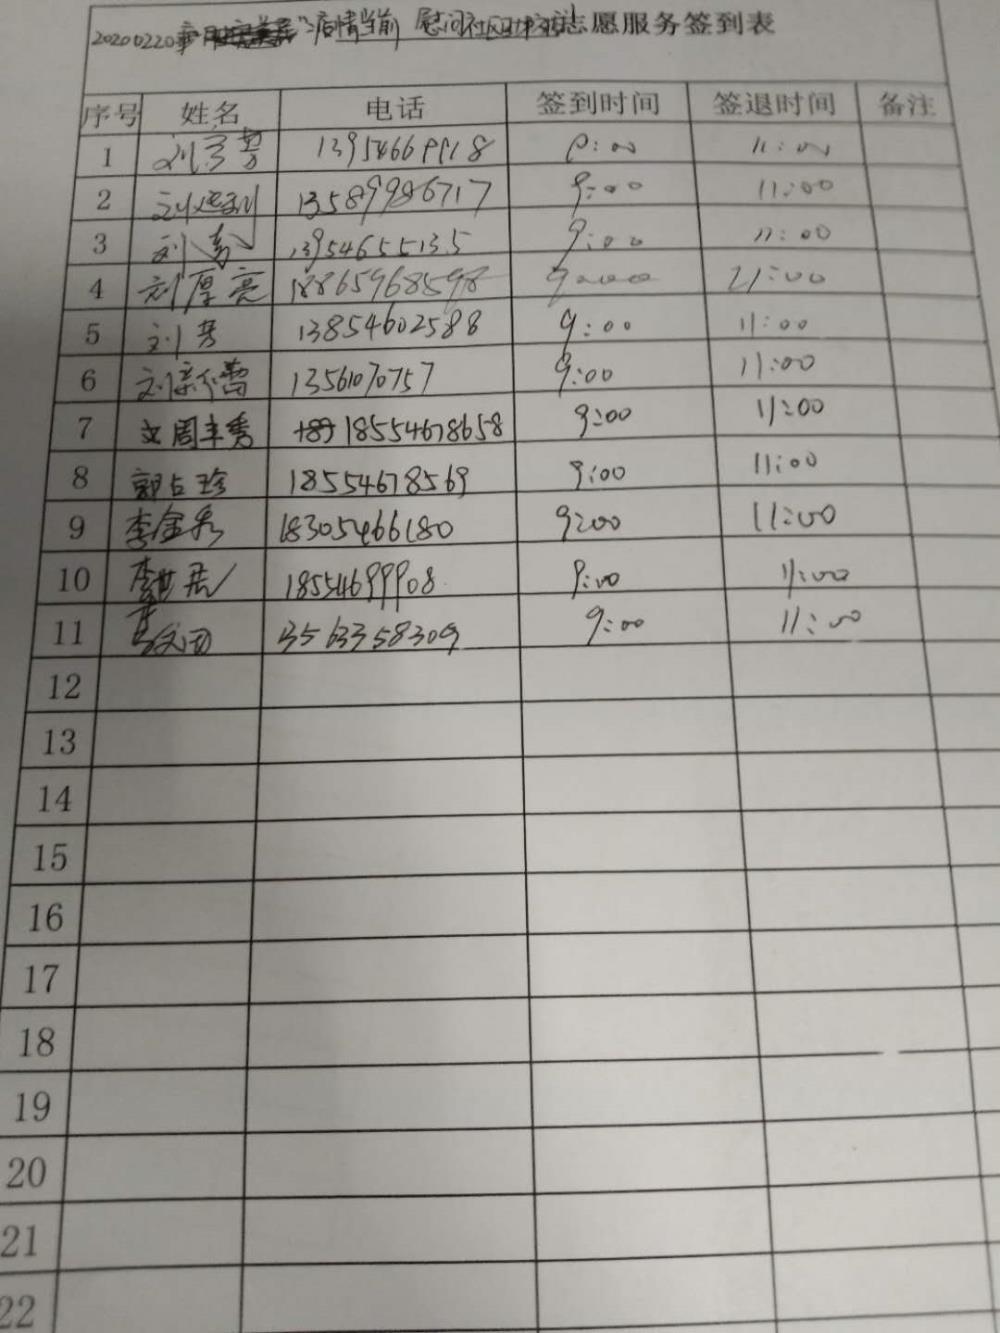 20200220 疫情当前 慰问社区 志愿服务签到表
序号 姓名 电话 签到时间 签退时间 备注
1 11:00
2 13589986717 9:00 11:00
3 刘 13954655135 9:00 11:00
4 刘厚亮 18865968598 9:00 11:00
5 刘芳 13854602588 9:00 11:00
6 刘 13561070757 9:00 11:00
7 周丰秀 18554678658 9:00 11:00
8 郭占珍 18554678569 9:00 11:00
9 李金秀 18305466180 9:00 11:00
10 李世 18554699908 9:00 11:00
11 3563358309 9:00 11:00
12
13
14
15
16
17
18
19
20
21
22